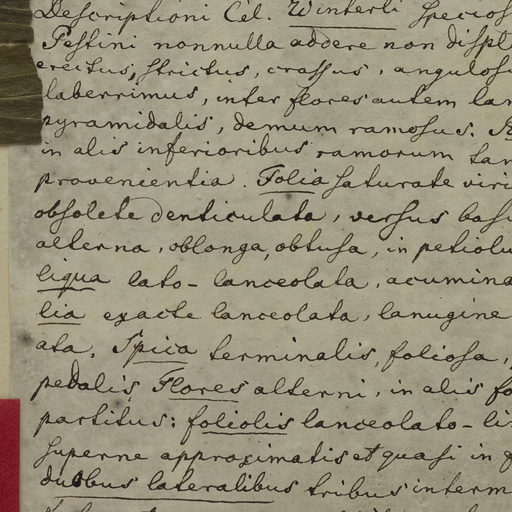 Descriptioni Cel. Winterli specios
Pestini nonnulla addere non displ
erectus, strictus, crassus, angulosu
laberrimus, inter flores autem lan
pyramidalis, demum ramosus.
in alis inferioribus ramorum tan
provenientia. Folia saturate viri
obsolete denticulata, versus basi
alterna, oblonga, obtusa, in petiolu
liqua lato-lanceolata, acumina
lia exacte lanceolata, lanugine
ata. Spica terminalis, foliosa,
pedalis Flores alterni, in alis fo
partitus: foliolis lanceolato-li
superne approximatis et quasi in
duobus lateralibus tribus interm